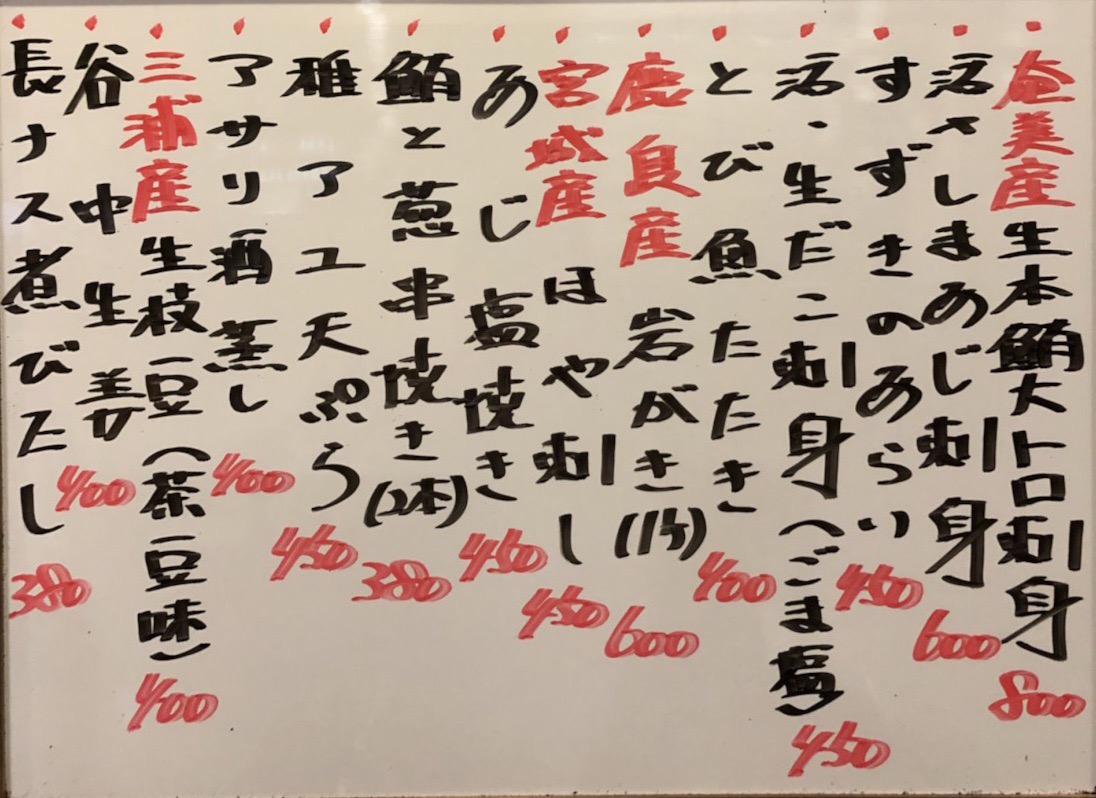 奄美産生本鮪大トロ刺身 800
活〆しまあじ刺身 600
すずきのあらい 450
活・生だこ刺身(ごま塩) 450
とび魚たたき 400
鹿良産岩がき(1ケ) 600
宮城産ほや刺し 450
あじ塩焼き 450
鮪と葱串焼き(2本) 380
稚アユ天ぷら 450
アサリ酒蒸し 400
三浦産生枝豆(茶豆味) 400
谷中生姜 400
長ナス煮びたし 380